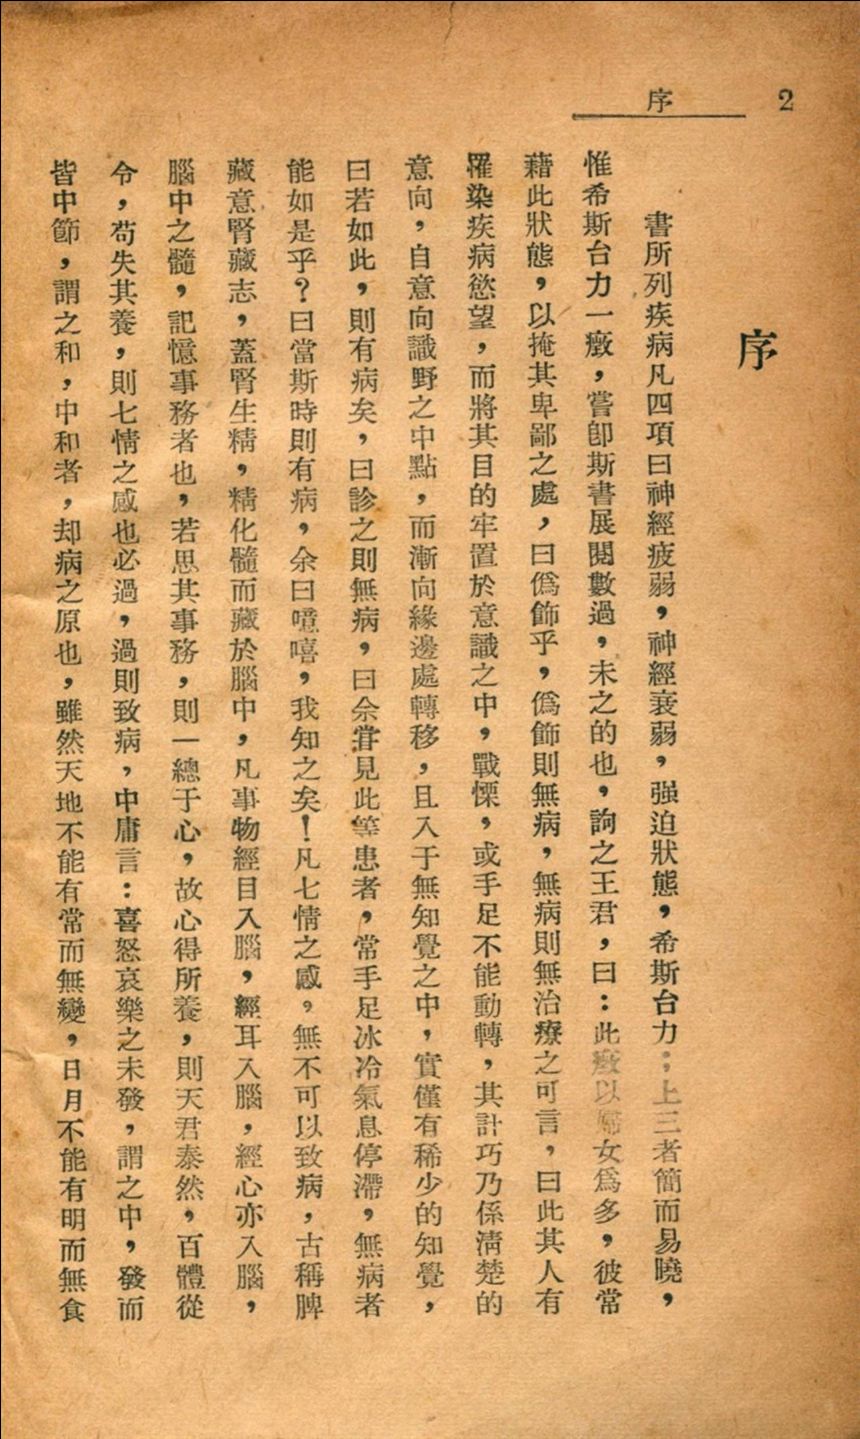 2
序
序
書所列疾病凡四項曰神經疲弱，神經衰弱，强迫狀態，希斯台力；上三者簡而易曉，
惟希斯台力一癥，嘗卽斯書展閱數過，未之的也，詢之王君，曰：此癥以婦女爲多，彼常
藉此狀態，以掩其卑鄙之處，曰僞飾乎，僞飾則無病，無病則無治療之可言，曰此其人有
罹染疾病慾望，而將其目的牢置於意識之中，戰慄，或手足不能動轉，其計巧乃係淸楚的
意向，自意向識野之中點，而漸向緣邊處轉移，且入于無知覺之中，實僅有稀少的知覺，
曰若如此，則有病矣，曰診之則無病，曰余嘗見此等患者，常手足冰冷氣息停滯，無病者
能如是乎？曰當斯時則有病，余曰噫嘻，我知之矣！凡七情之感，無不可以致病，古稱脾
藏意腎藏志，蓋腎生精，精化髓而藏於腦中，凡事物經目入腦，經耳入腦，經心亦入腦，
腦中之髓，記憶事務者也，若思其事務，則一總于心，故心得所養，則天君泰然，百體從
令，苟失其養，則七情之感也必過，過則致病，中庸言：喜怒哀樂之未發，謂之中，發而
皆中節，謂之和，中和者，却病之原也，雖然天地不能有常而無變，日月不能有明而無食